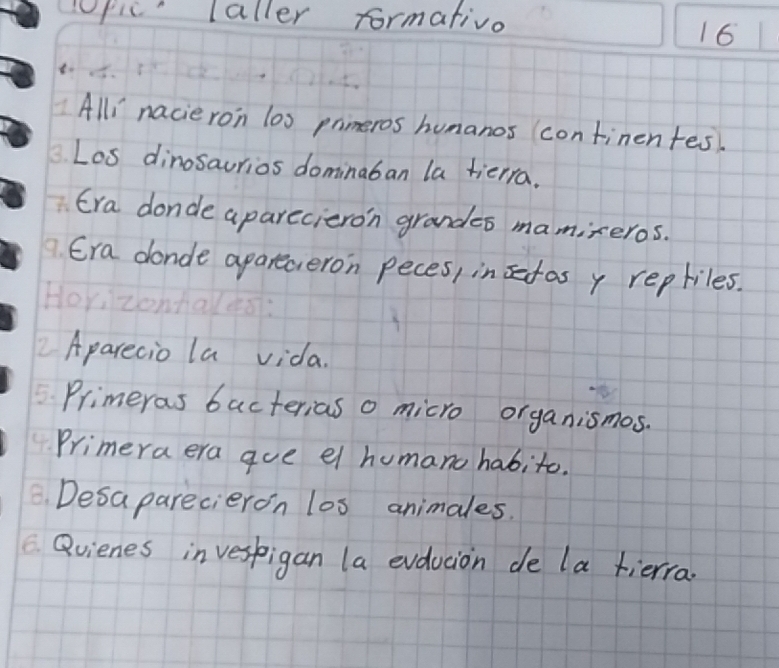 Topic: Taller formativo
16
1 Allí nacierón los primeros humanos (continentes).
3. Los dinosaurios dominaban la tierra.
7. Era donde aparecierón grandes mamiferos.
9. Era donde aparecierón peces, insectos y reptiles.
Horizontales:
2 Aparecio la vida.
5. Primeras bacterias o micro organismos.
4. Primera era que el humano habito.
8. Desaparecierón los animales.
6. Quienes investigan la evolución de la tierra.